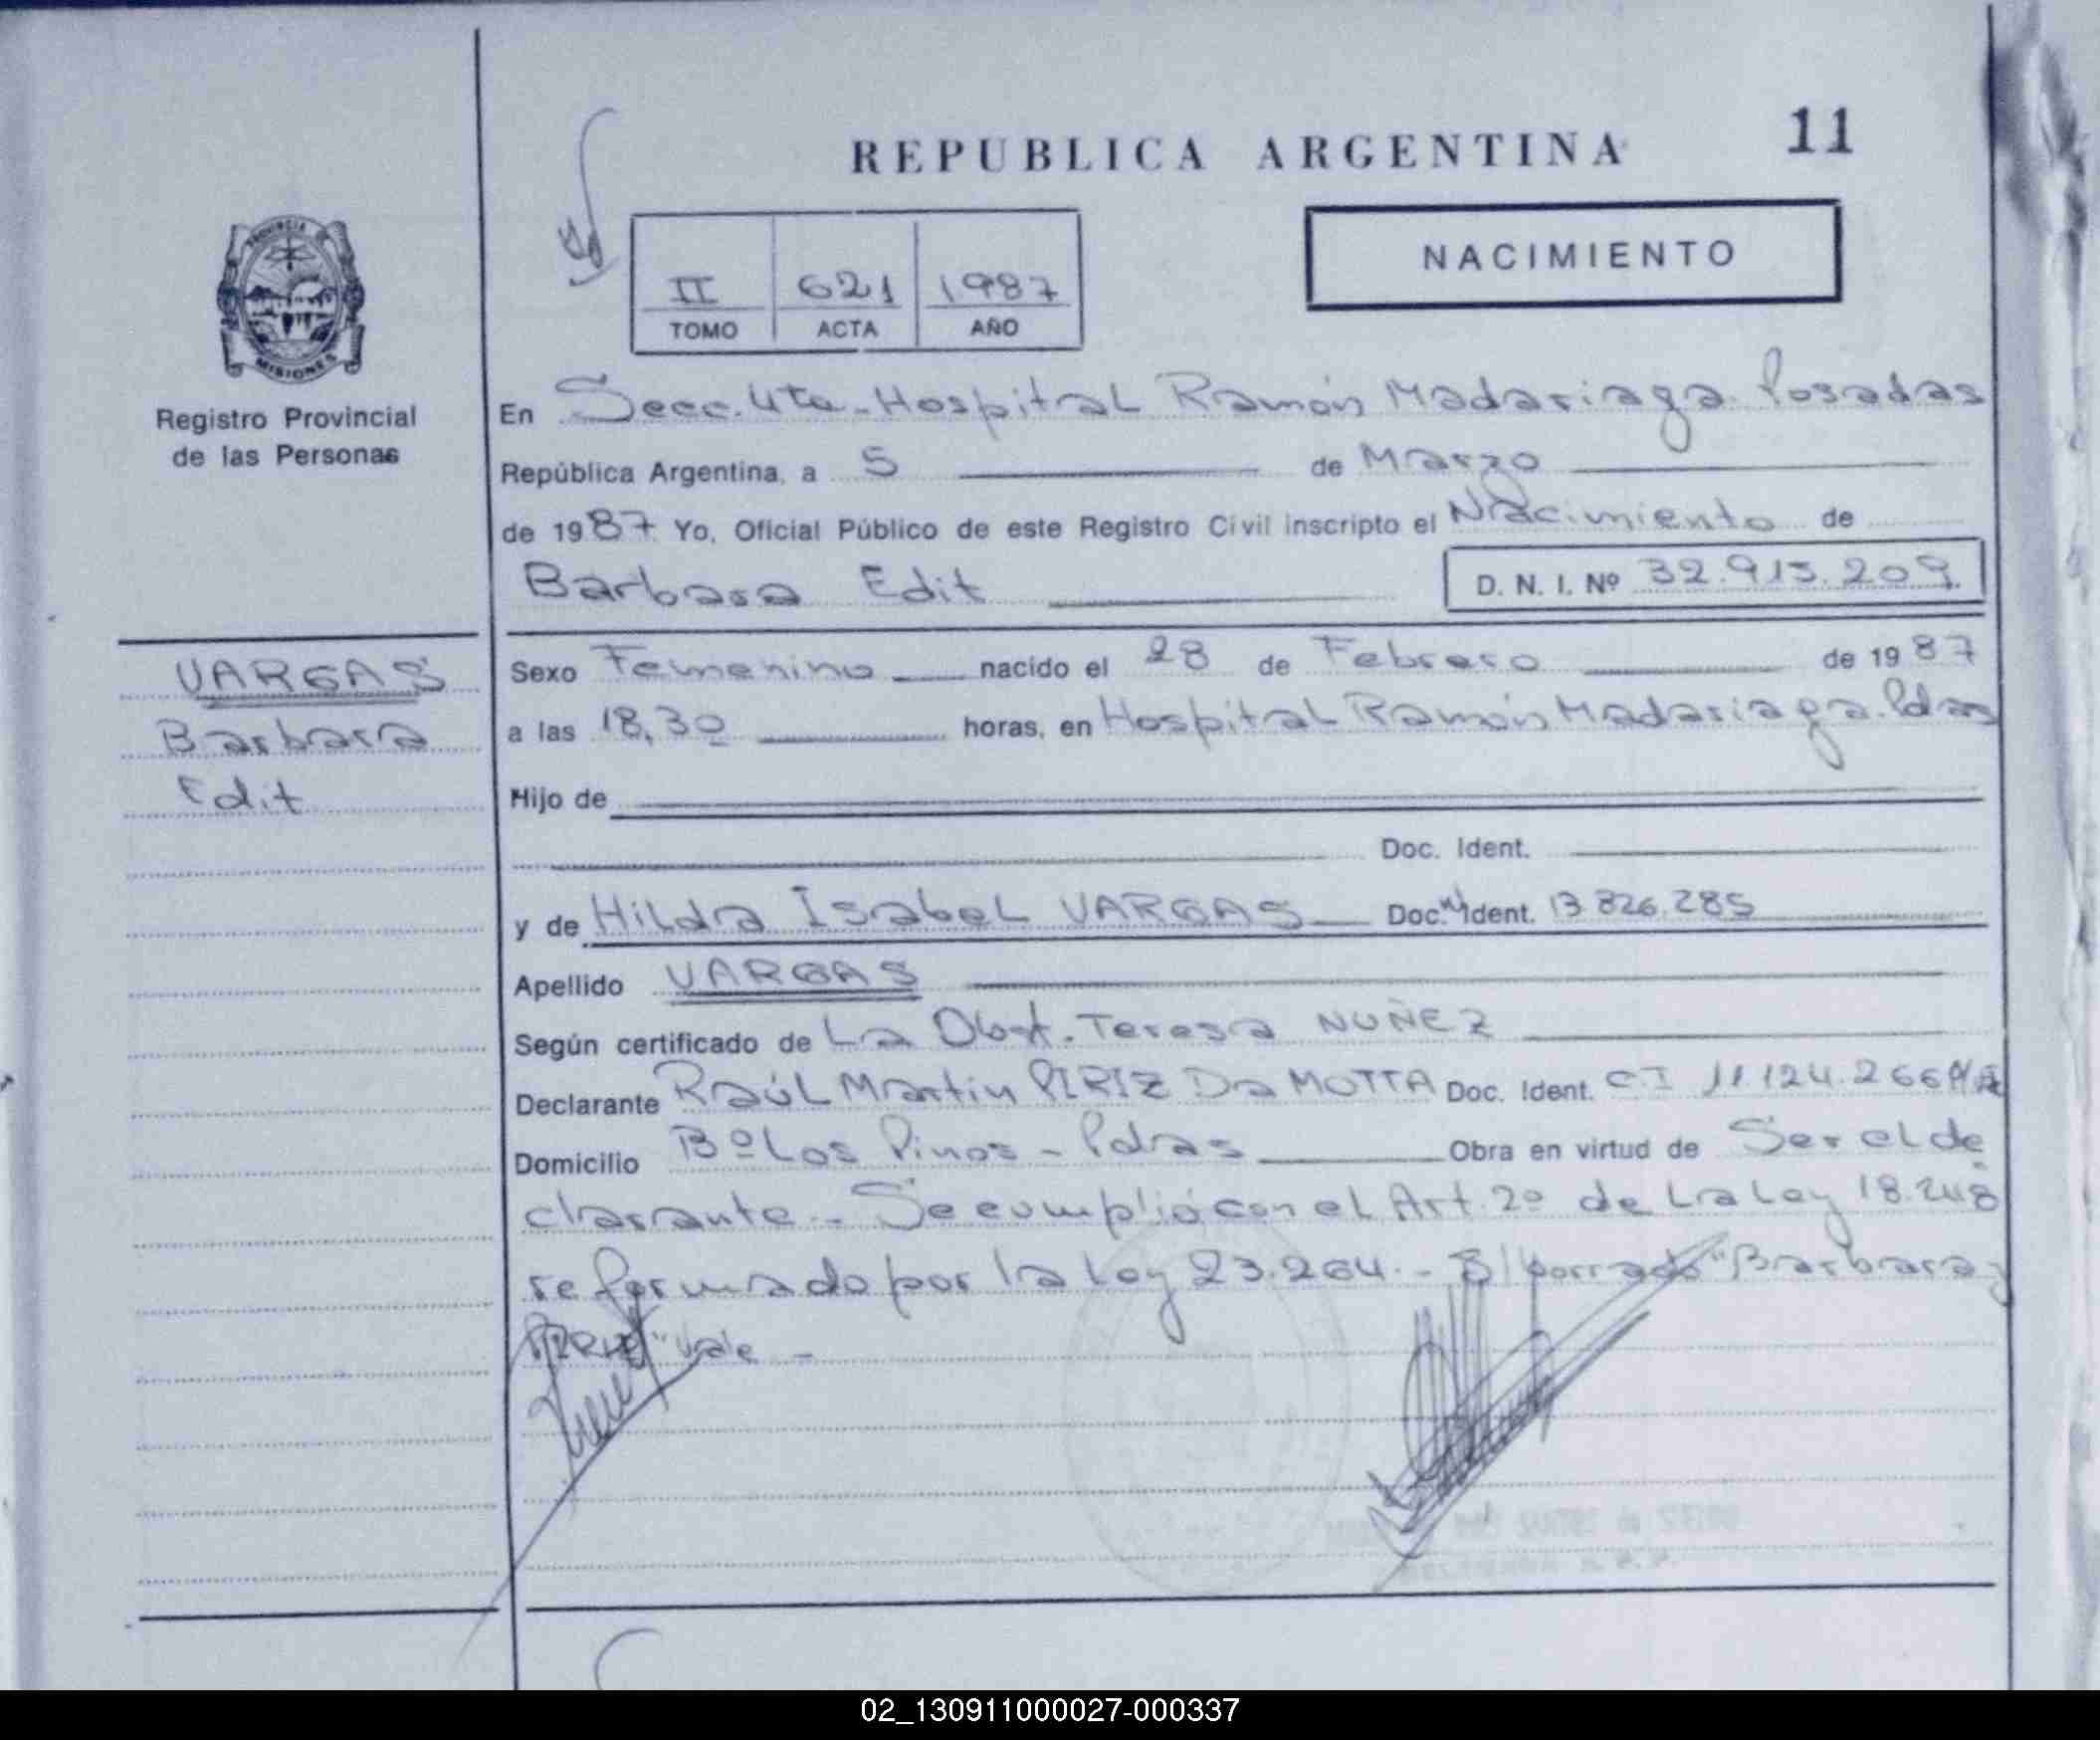 REPUBLICA ARGENTINA
11
NACIMIENTO
II 621 1987
TOMO ACTA AÑO
PROVINCIA DE
MISIONES
Registro Provincial
de las Personas
En Secc. 4ta - Hospital Ramón Madariaga. Posadas
República Argentina, a 5 de Marzo
de 1987. Yo, Oficial Público de este Registro Civil inscripto el Nacimiento de
Barbara Edit D. N. I. Nº 32.915.209
VARGAS
Barbara
Edit
Sexo Femenino nacido el 28 de Febrero de 1987
a las 18,30 horas, en Hospital Ramón Madariaga. Pdas
Hijo de
Doc. Ident.
y de Hilda Isabel VARGAS Doc. Ident. 13 826.285
Apellido VARGAS
Según certificado de La Obst. Teresa NUÑEZ
Declarante Raúl Martin PIRIZ Da MOTTA Doc. Ident. CI 11.124.266
Domicilio Bº Los Pinos - Pdas Obra en virtud de Ser el de
clarante - Se cumplió con el Art. 2º de La Ley 18.248
reformado por la Ley 23.264. - S/ borrado "Barbara y
PIRIZ" Vale -
02_130911000027-000337